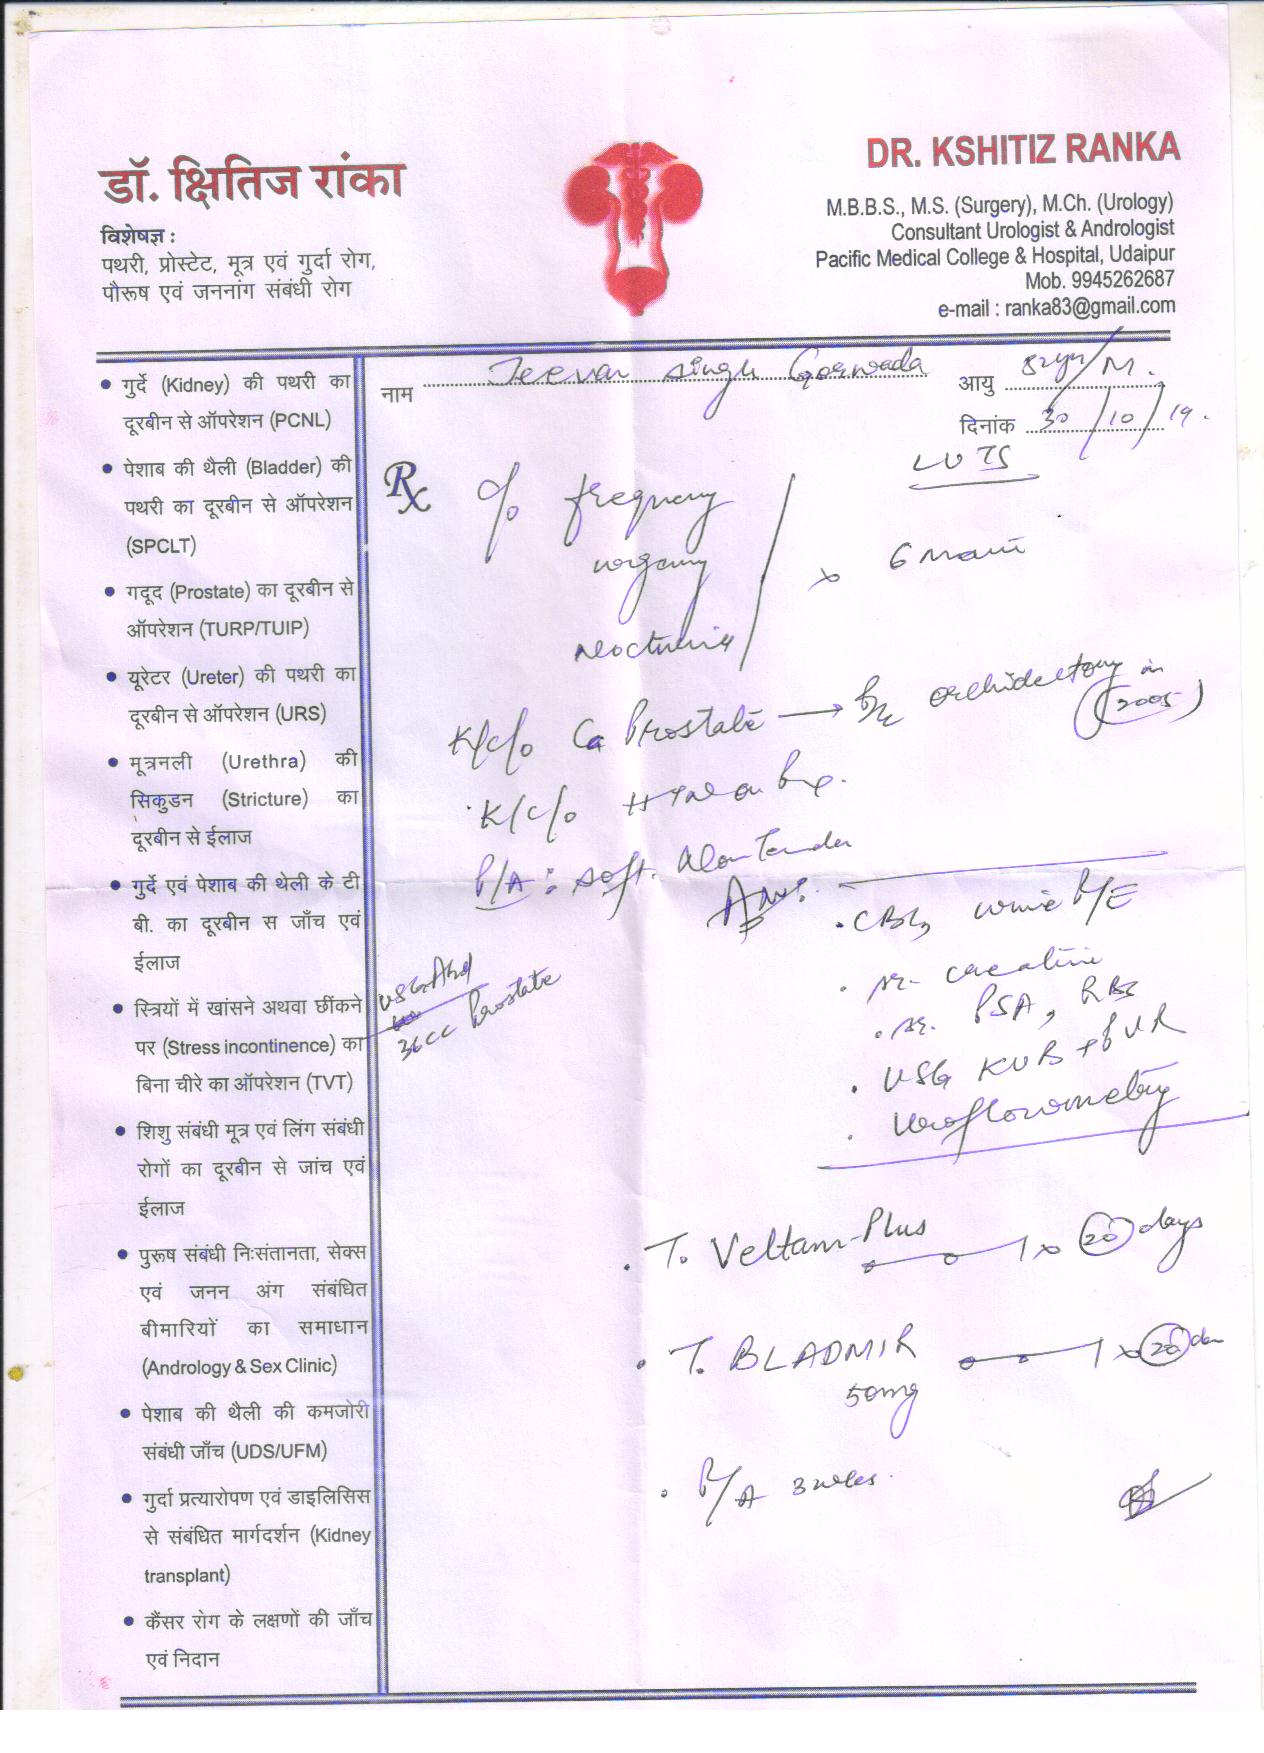 डॉ. क्षितिज रांका
विशेषज्ञ :
पथरी, प्रोस्टेट, मूत्र एवं गुर्दा रोग,
पौरूष एवं जननांग संबंधी रोग
DR. KSHITIZ RANKA
M.B.B.S., M.S. (Surgery), M.Ch. (Urology)
Consultant Urologist & Andrologist
Pacific Medical College & Hospital, Udaipur
Mob. 9945262687
e-mail : ranka83@gmail.com
नाम Jeevan Singh
आयु 82yr/M.
दिनांक 30/10/19.
• गुर्दे (Kidney) की पथरी का
दूरबीन से ऑपरेशन (PCNL)
• पेशाब की थैली (Bladder) की
पथरी का दूरबीन से ऑपरेशन
(SPCLT)
• गदूद (Prostate) का दूरबीन से
ऑपरेशन (TURP/TUIP)
• यूरेटर (Ureter) की पथरी का
दूरबीन से ऑपरेशन (URS)
• मूत्रनली (Urethra) की
सिकुडन (Stricture) का
दूरबीन से ईलाज
• गुर्दे एवं पेशाब की थेली के टी
बी. का दूरबीन स जाँच एवं
ईलाज
• स्त्रियों में खांसने अथवा छींकने
पर (Stress incontinence) का
बिना चीरे का ऑपरेशन (TVT)
• शिशु संबंधी मूत्र एवं लिंग संबंधी
रोगों का दूरबीन से जांच एवं
ईलाज
• पुरूष संबंधी निःसंतानता, सेक्स
एवं जनन अंग संबंधित
बीमारियों का समाधान
(Andrology & Sex Clinic)
• पेशाब की थैली की कमजोरी
संबंधी जाँच (UDS/UFM)
• गुर्दा प्रत्यारोपण एवं डाइलिसिस
से संबंधित मार्गदर्शन (Kidney
transplant)
• कैंसर रोग के लक्षणों की जाँच
एवं निदान
LUTS
Rx c/o frequency
urgency
nocturia
x 6 month
K/c/o Ca Prostate → B/L orchidectomy in (2005)
K/c/o HTN on
P/A: soft. Non Tender
Adv:
• CBC, urine R/E
• sr. creatine
• sr. PSA, RBS
• USG KUB + PVR
• Uroflowmetry
USG Abd
36cc Prostate
• T. Veltam-Plus o—o—1 x 20 days
• T. BLADMIR o—o—1 x 20
50mg
• R/A 3 weeks.